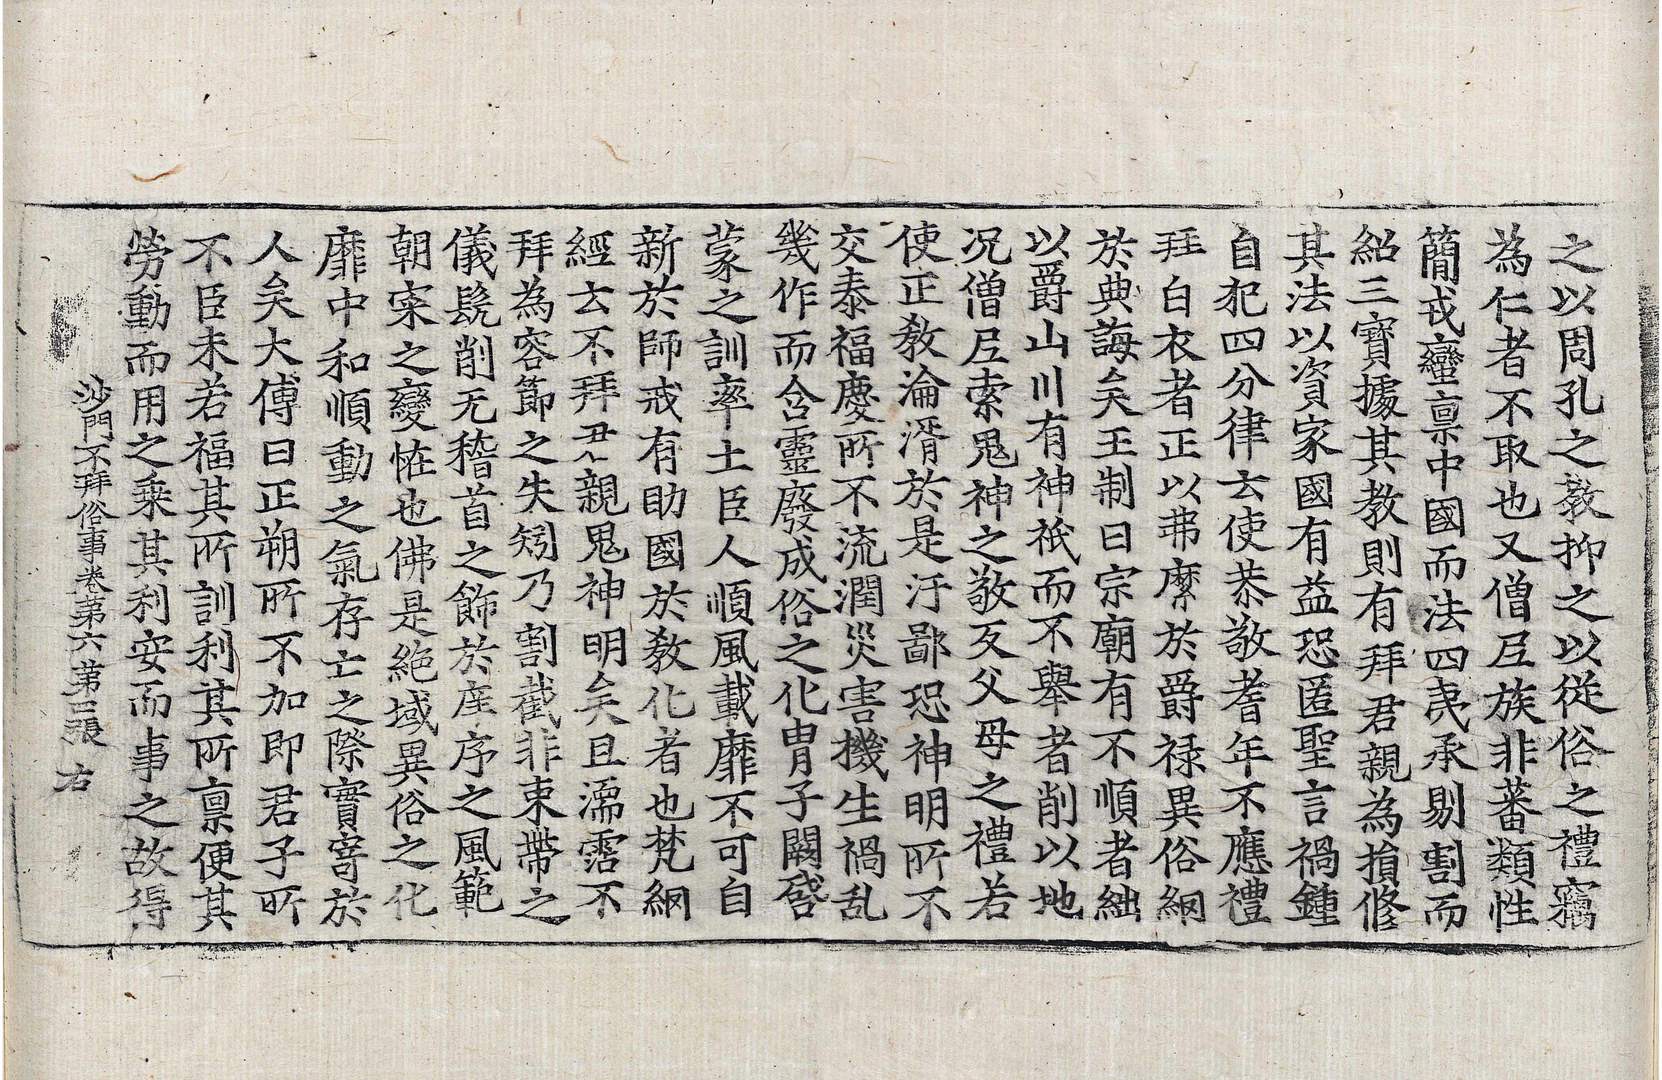 之以周孔之教抑之以從俗之禮竊
為仁者不取也又僧尼族非蕃類性
簡戎蠻禀中國而法四夷承剔割而
紹三寶據其教則有拜君親為損修
其法以資家國有益恐匿聖言禍鍾
自犯四分律云使恭敬耆年不應禮
拜白衣者正以弗縻於爵禄異俗網
於典誨矣王制曰宗廟有不順者絀
以爵山川有神祇而不舉者削以地
况僧尼索鬼神之敬反父母之禮若
使正教淪湑於是汙鄙恐神明所不
交泰福慶所不流潤災害機生禍乱
幾作而含靈廢成俗之化胄子闕啓
蒙之訓率土臣人順風載靡不可自
新於師戒有助國於教化者也梵網
經云不拜君親鬼神明矣且濡霑不
拜為容節之失矧乃割截非束帶之
儀髡削无稽首之飾於庠序之風範
朝寀之變恠也佛是絕域異俗之化
靡中和順動之氣存亡之際實寄於
人矣大傅曰正朔所不加即君子所
不臣未若福其所訓利其所禀便其
勞動而用之乗其利安而事之故得
沙門不拜俗事卷第六 第二張 右